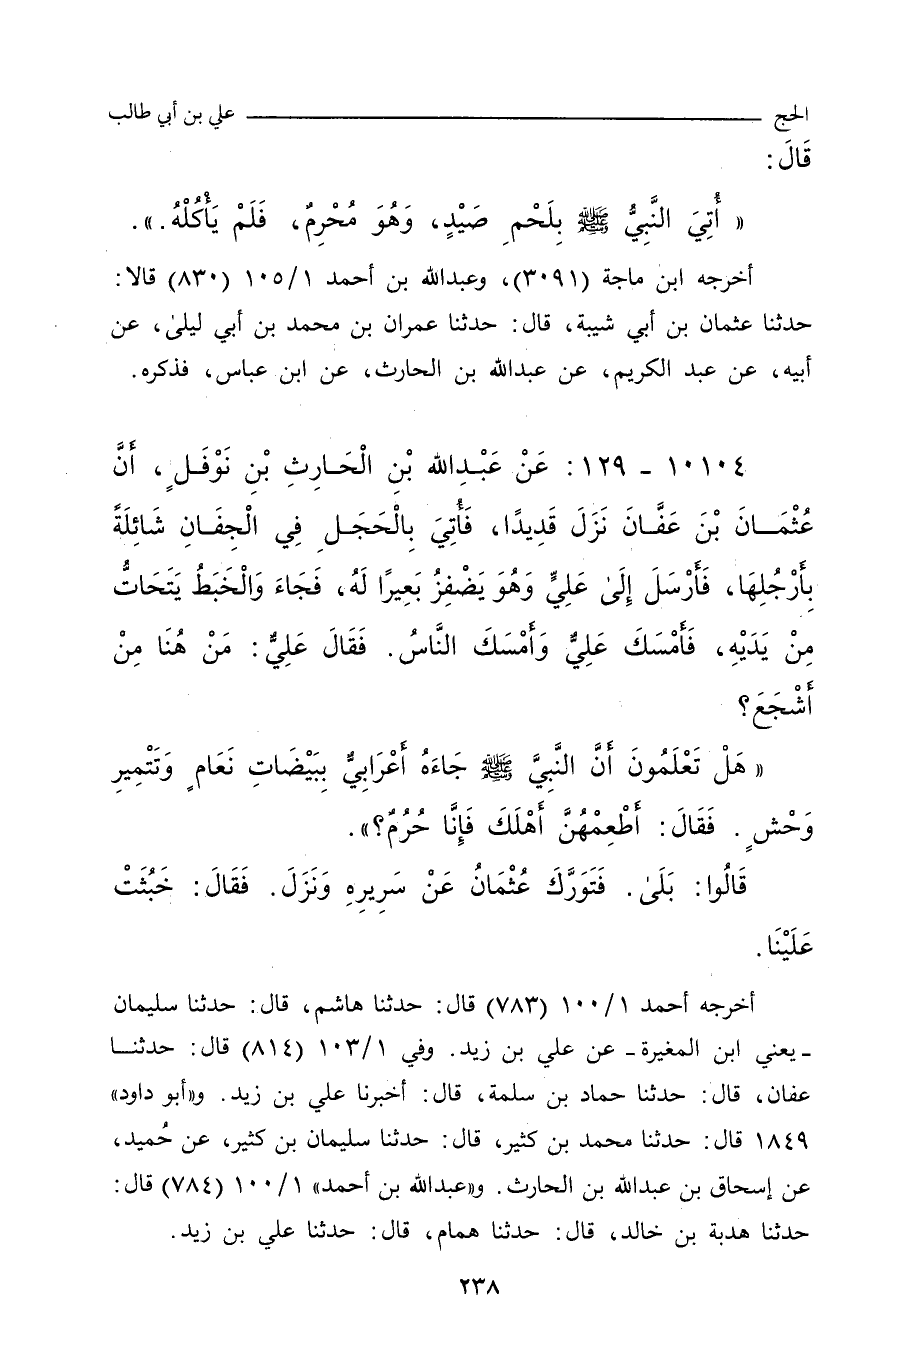 الحج علي بن أبي طالب
قَالَ:
« أُتِيَ النَّبِيُّ ﷺ بِلَحْمِ صَيْدٍ، وَهُوَ مُحْرِمٌ، فَلَمْ يَأْكُلْهُ.».
أخرجه ابن ماجة (٣٠٩١)، وعبدالله بن أحمد ١٠٥/١ (٨٣٠) قالا:
حدثنا عثمان بن أبي شيبة، قال: حدثنا عمران بن محمد بن أبي ليلىٰ، عن
أبيه، عن عبد الكريم، عن عبدالله بن الحارث، عن ابن عباس، فذكره.
١٠١٠٤ - ١٢٩: عَنْ عَبْدِالله بْنِ الْحَارِثِ بْنِ نَوْفَلٍ، أَنَّ
عُثْمَانَ بْنَ عَفَّانَ نَزَلَ قَدِيدًا، فَأُتِيَ بِالْحَجَلِ فِي الْجِفَانِ شَائِلَةً
بِأَرْجُلِهَا، فَأَرْسَلَ إِلَىٰ عَلِيٍّ وَهُوَ يَضْفِزُ بَعِيرًا لَهُ، فَجَاءَ وَالْخَبَطُ يَتَحَاتُّ
مِنْ يَدَيْهِ، فَأَمْسَكَ عَلِيٌّ وَأَمْسَكَ النَّاسُ. فَقَالَ عَلِيٌّ: مَنْ هُنَا مِنْ
أَشْجَعَ؟
« هَلْ تَعْلَمُونَ أَنَّ النَّبِيَّ ﷺ جَاءَهُ أَعْرَابِيٌّ بِبَيْضَاتِ نَعَامٍ وَتَتْمِيرِ
وَحْشٍ. فَقَالَ: أَطْعِمْهُنَّ أَهْلَكَ فَإِنَّا حُرُمٌ؟».
قَالُوا: بَلَىٰ. فَتَوَرَّكَ عُثْمَانُ عَنْ سَرِيرِهِ وَنَزَلَ. فَقَالَ: خَبُثَتْ
عَلَيْنَا.
أخرجه أحمد ١٠٠/١ (٧٨٣) قال: حدثنا هاشم، قال: حدثنا سليمان
- يعني ابن المغيرة - عن علي بن زيد. وفي ١٠٣/١ (٨١٤) قال: حدثنا
عفان، قال: حدثنا حماد بن سلمة، قال: أخبرنا علي بن زيد. و«أبو داود»
١٨٤٩ قال: حدثنا محمد بن كثير، قال: حدثنا سليمان بن كثير، عن حُميد،
عن إسحاق بن عبدالله بن الحارث. و«عبدالله بن أحمد» ١٠٠/١ (٧٨٤) قال:
حدثنا هدبة بن خالد، قال: حدثنا همام، قال: حدثنا علي بن زيد.
٢٣٨